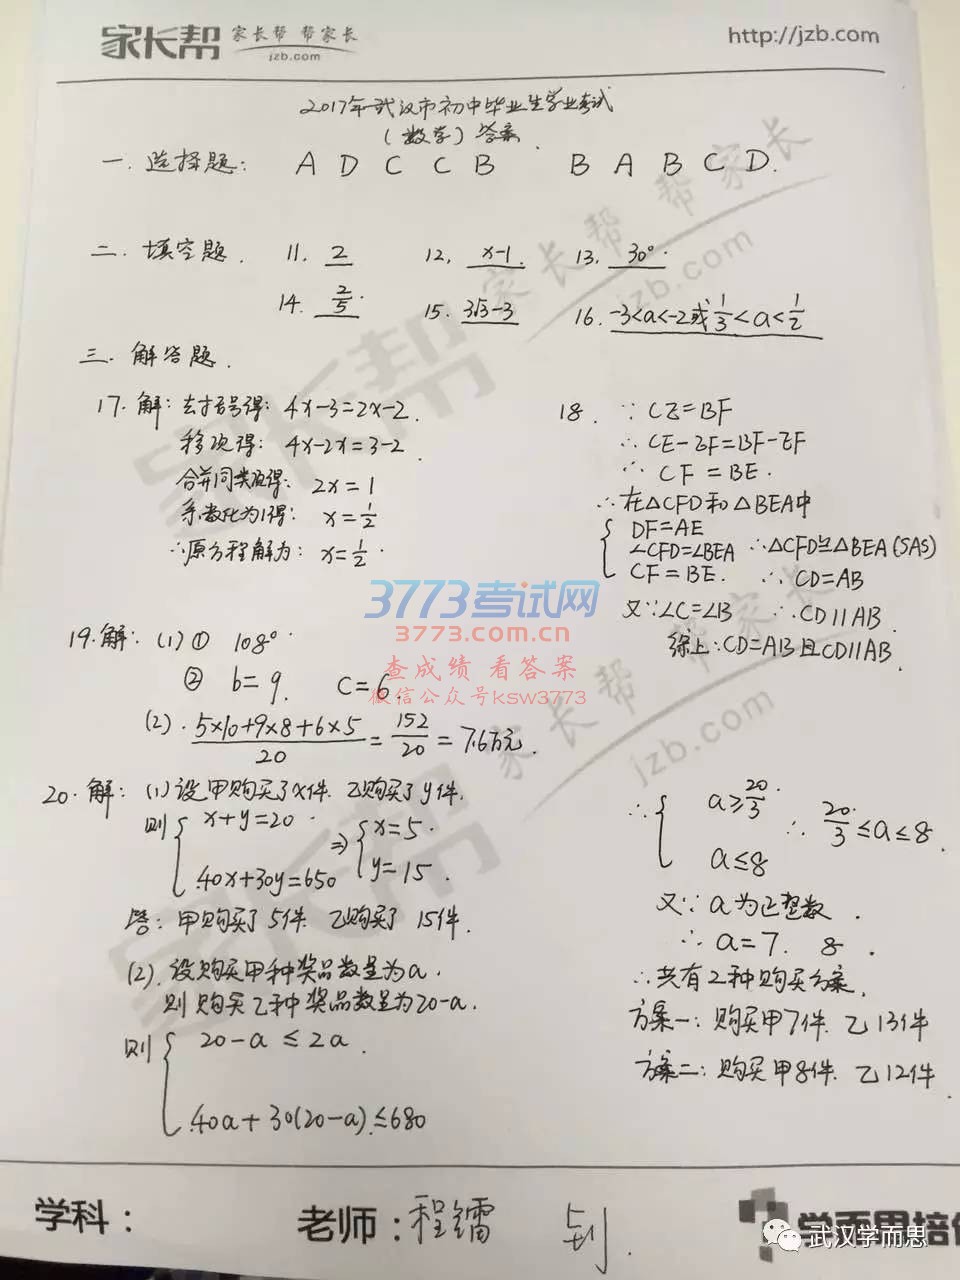 家长帮 家长帮 帮家长
jzb.com
http://jzb.com
2017年武汉市初中毕业生学业考试
(数学)答案.
一.选择题: A D C C B B A B C D.
二.填空题. 11. 2 12. x-1. 13. 30°.
14. 2/5. 15. 3√3-3 16. -3<a<-2或1/3<a<1/2
三.解答题.
17.解:去括号得: 4x-3=2x-2.
移项得: 4x-2x=3-2.
合并同类项得: 2x=1
系数化为1得: x=1/2
∴原方程解为: x=1/2.
18. ∵CE=BF
∴CE-EF=BF-EF
∴CF=BE.
∴在△CFD和△BEA中
DF=AE
∠CFD=∠BEA ∴△CFD≌△BEA(SAS)
CF=BE. ∴CD=AB
又∵∠C=∠B ∴CD∥AB.
综上:CD=AB且CD∥AB.
3773考试网
3773.com.cn
查成绩 看答案
微信公众号ksw3773
19.解:(1)① 108°.
② b=9. C=6.
(2). 5×10+9×8+6×5/20=152/20=7.6万元.
20.解:(1)设甲购买了x件.乙购买了y件.
则{x+y=20. ⇒{x=5.
40x+30y=650 y=15.
答:甲购买了5件.乙购买了15件.
(2).设购买甲种奖品数量为a.
则购买乙种奖品数量为20-a.
则{20-a≤2a.
40a+30(20-a)≤680
∴{a≥20/3 ∴20/3≤a≤8.
a≤8
又∵a为正整数.
∴a=7. 8.
∴共有2种购买方案.
方案一:购买甲7件.乙13件
方案二:购买甲8件.乙12件.
家长帮 帮家长
jzb.com
家长帮 帮家长
jzb.com
学科:
老师:程镭
学而思培
武汉学而思